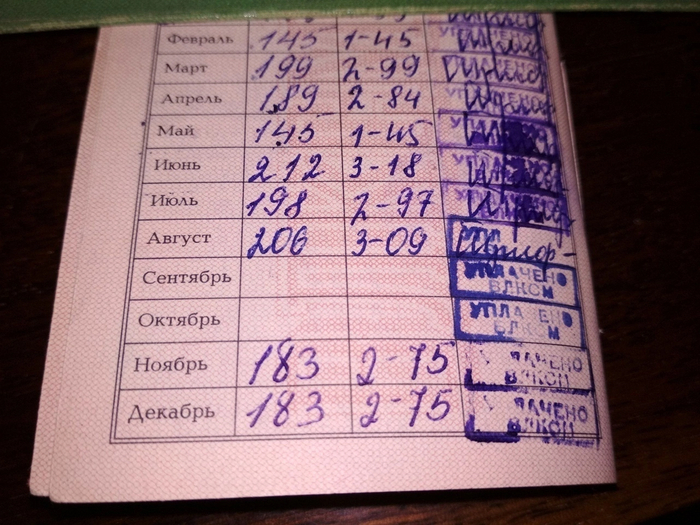 Февраль 145 1-45 УПЛАЧЕНО
Март 199 2-99
Апрель 189 2-84
Май 145 1-45
Июнь 212 3-18
Июль 198 2-97
Август 206 3-09
Сентябрь УПЛАЧЕНО
ВЛКСМ
Октябрь УПЛАЧЕНО
ВЛКСМ
Ноябрь 183 2-75 УПЛАЧЕНО
ВЛКСМ
Декабрь 183 2-75 УПЛАЧЕНО
ВЛКСМ